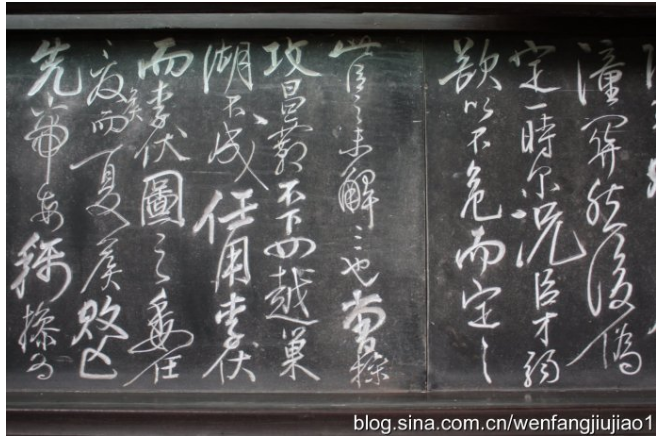 潼関然後偽
定一時尔况臣才弱
欲以不危而定之
此臣之未解三也曹操
攻昌霸不下四越巢
湖不成任用李伏
而李伏圖之委任
夏矦而夏矦敗亡
先帝每稱操為
blog.sina.com.cn/wenfangjiujiao1